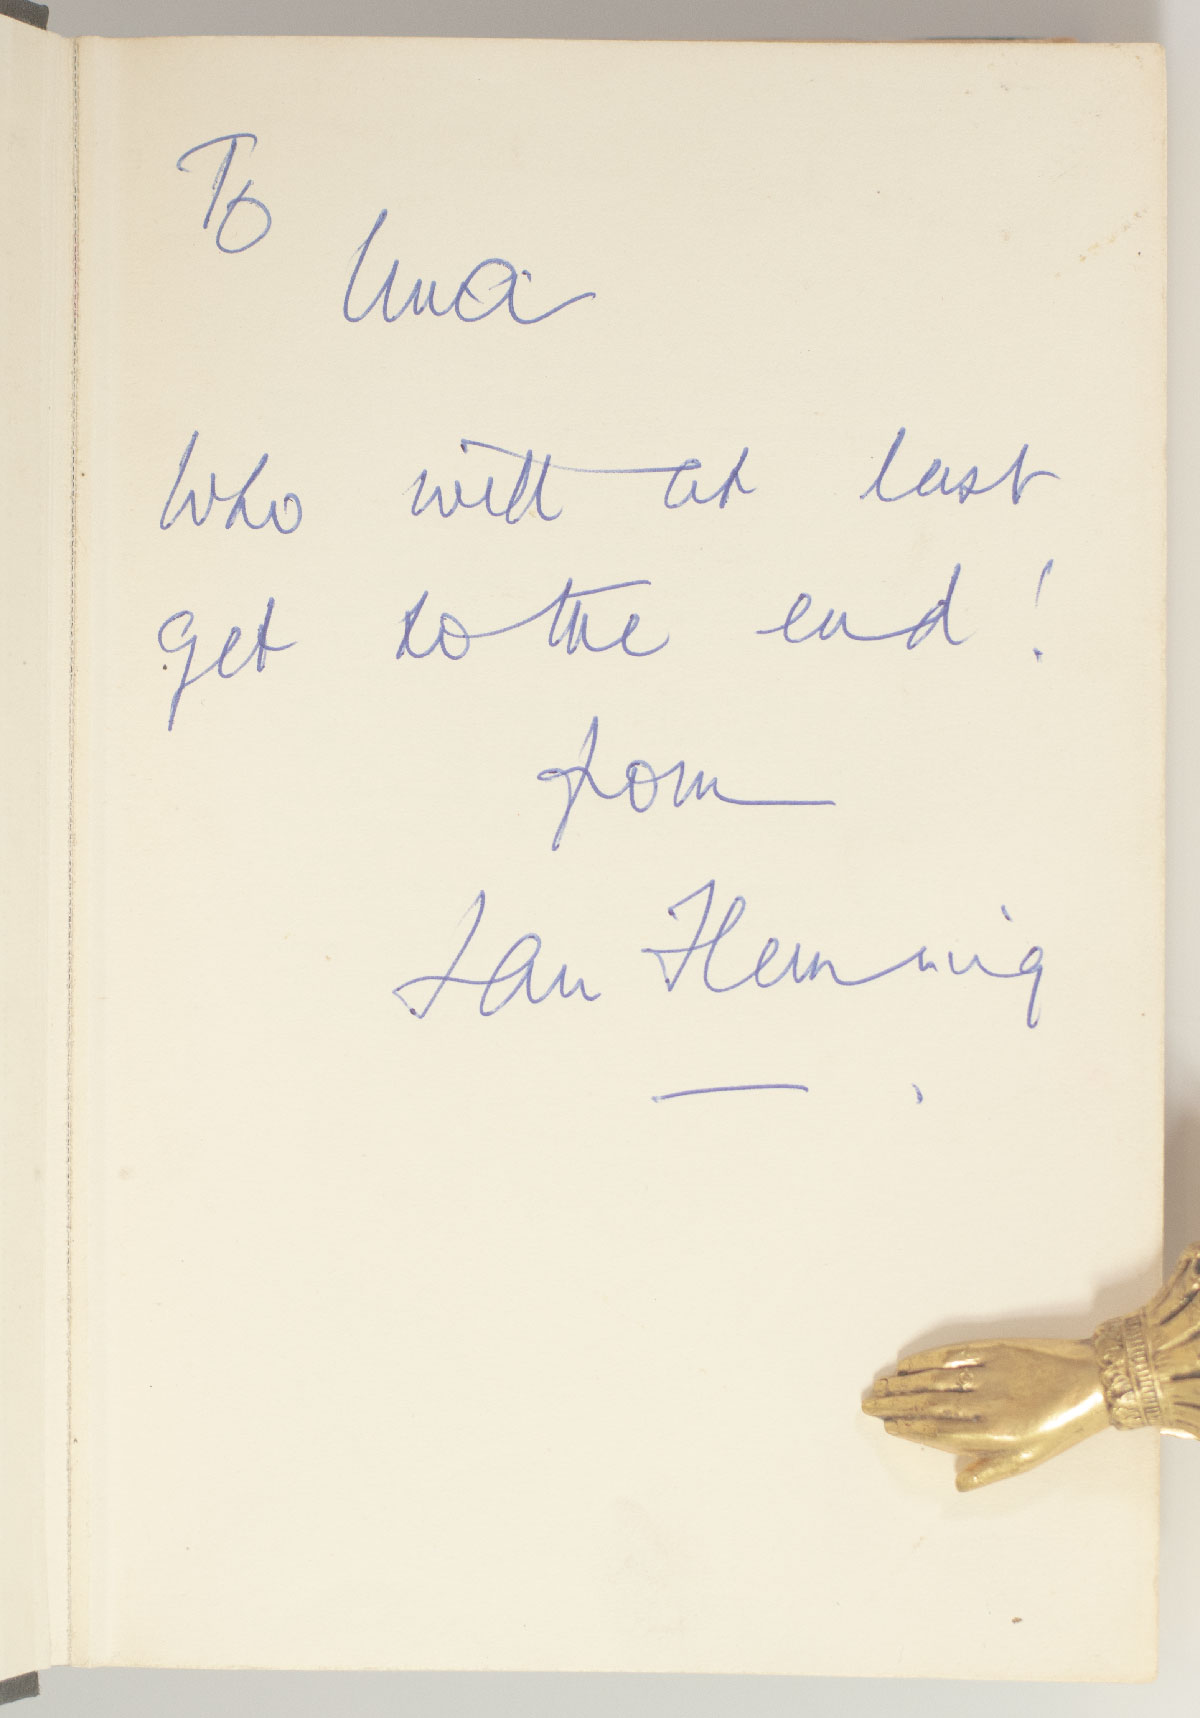 To
Una
Who will at last
get to the end!
from
Ian Fleming